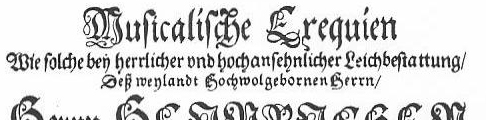 Musicalische Exequien
Wie solche bey herrlicher vnd hochansehnlicher Leichbestattung/
Deß weylandt Hochwolgebornen Herrn/